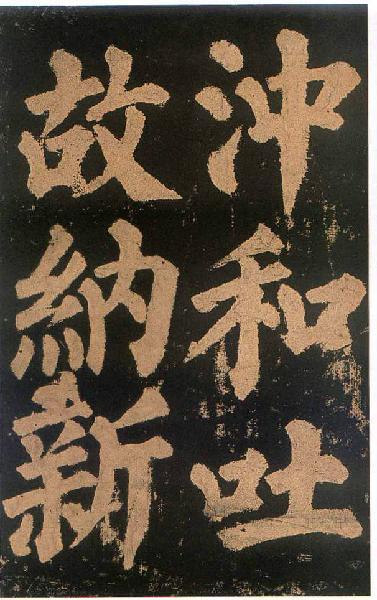 沖和吐
故納新